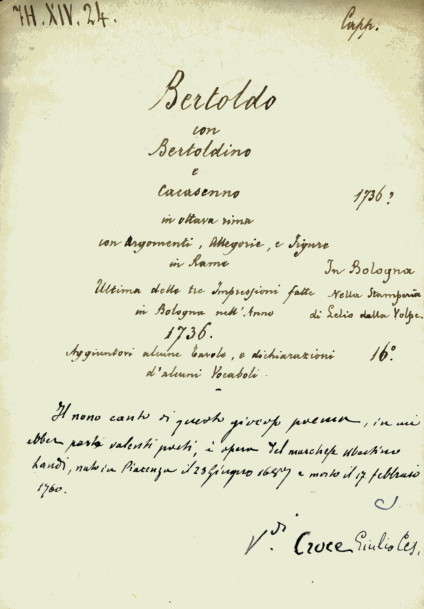 7H. XIV. 24.
Capp.
Bertoldo
con
Bertoldino
e
Cacasenno
1736?
in ottava rima
con Argomenti, Allegorie, e Figure
in Rame
In Bologna
Ultima delle tre Impressioni fatte
Nella Stamperia
in Bologna nell'Anno
di Lelio dalla Volpe.
1736.
Aggiuntovi alcune Tavole, e dichiarazioni
16°
d'alcuni Vocaboli.
Il nono canto di questo giocoso poema, in cui
ebber parte valenti poeti, è opera del marchese Ubertino
Landi, nato in Piacenza il 23 Giugno 1687 e morto il 17 febbraio
1760.
V. di Croce Giulio Ces.